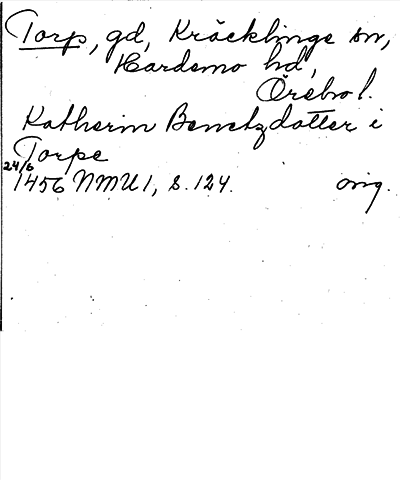 Torp, gd, Kräcklinge sn,
Hardemo hd,
Örebro l.
Katherin Benetzdotter i
Torpe
24/6
1456 NMU 1, s. 124. orig.